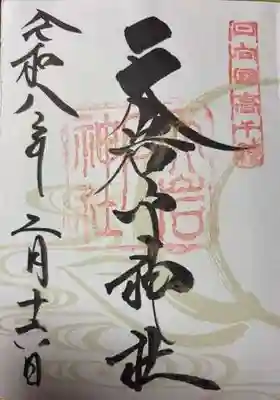 日向国高千穂
天岩戸神社
天岩戸神社
令和八年二月十六日